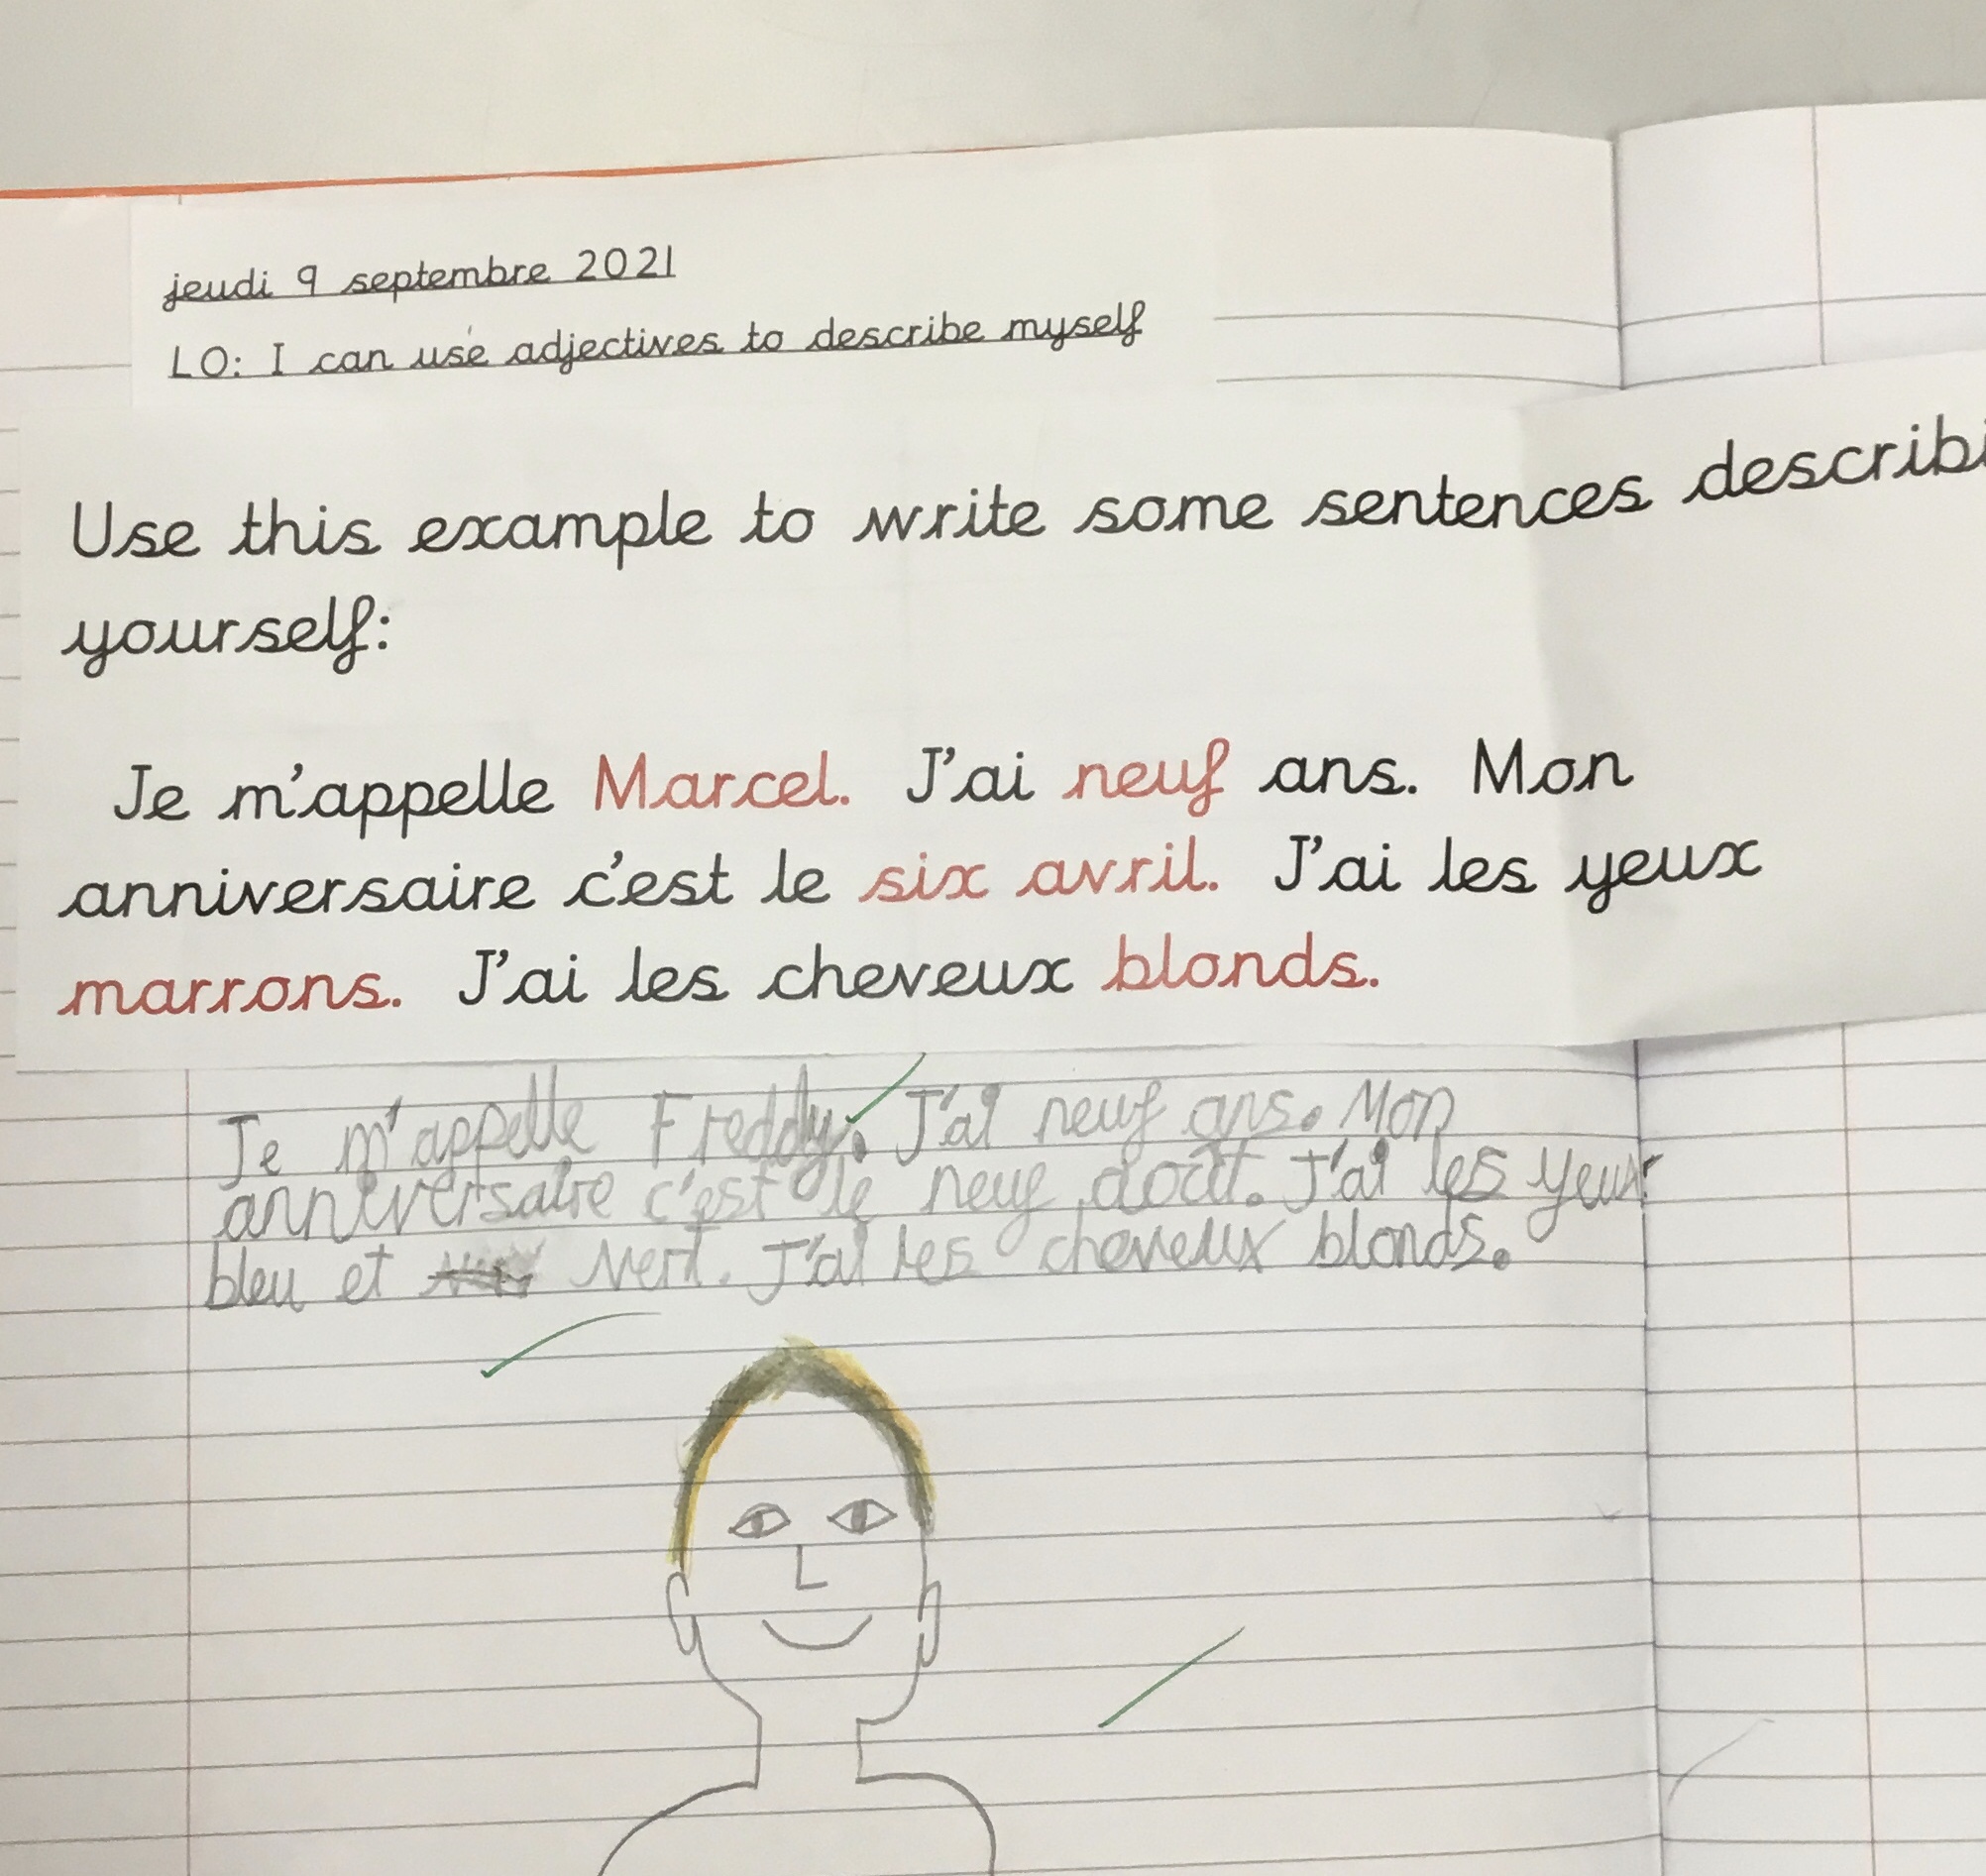 jeudi 9 septembre 2021
LO: I can use adjectives to describe myself
Use this example to write some sentences describi
yourself:
Je m'appelle Marcel. J'ai neuf ans. Mon
anniversaire c'est le six avril. J'ai les yeux
marrons. J'ai les cheveux blonds.
Je m'appelle Freddy. J'ai neuf ans. Mon
anniversaire c'est le neuf août. J'ai les yeux
bleu et vert. J'ai les cheveux blonds.